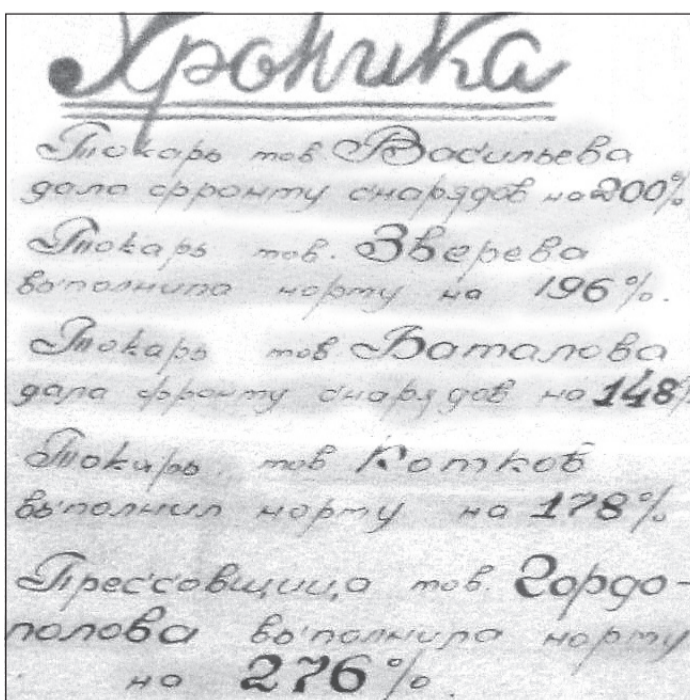 Хроника
Токарь тов. Васильева
дала фронту снарядов на 200%
Токарь тов. Зверева
выполнила норму на 196%.
Токарь тов. Баталова
дала фронту снарядов на 148%
Токарь тов. Котков
выполнил норму на 178%
Прессовщица тов. Гордо-
полова выполнила норму
на 276%